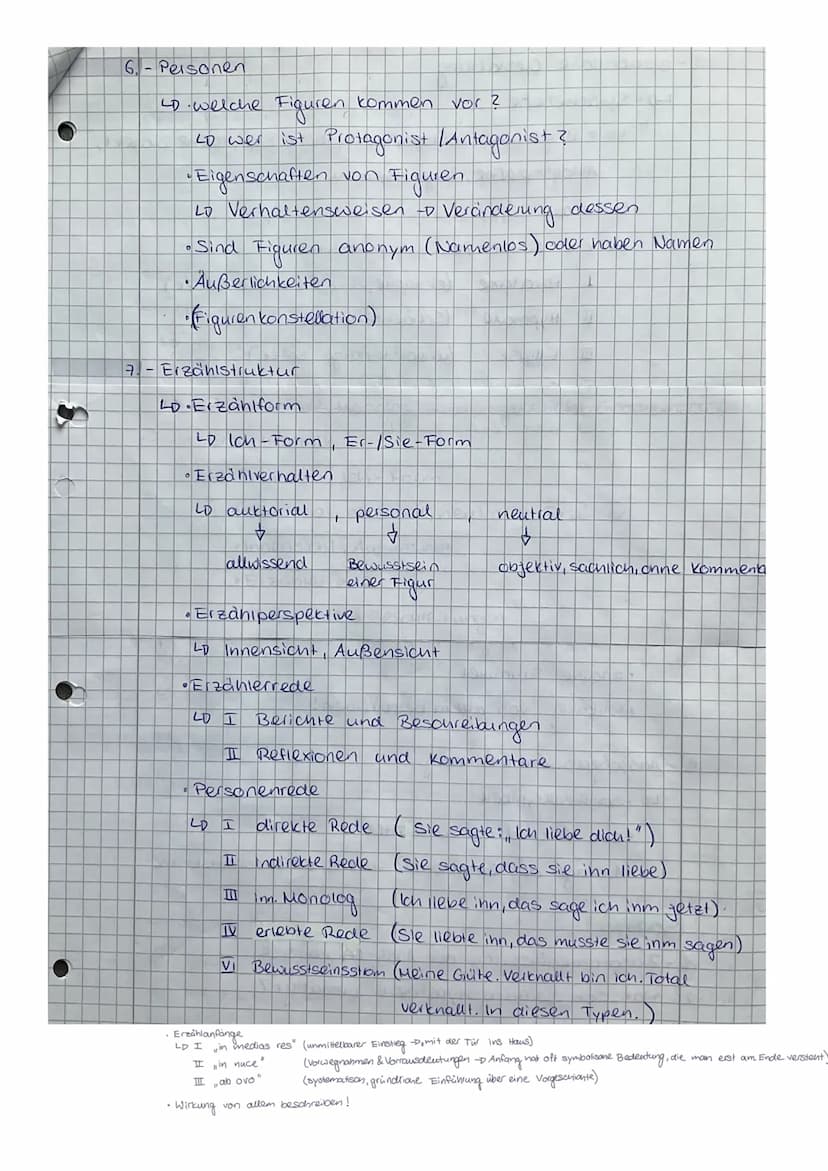 6. - Personen
↳ · welche Figuren kommen vor?
↳ wer ist Protagonist / Antagonist?
· Eigenschaften von Figuren
↳ Verhaltensweisen → Veränderung dessen
· Sind Figuren anonym (Namenlos) oder haben Namen
· Äußerlichkeiten
· (Figurenkonstellation)
7. - Erzählstruktur
↳ · Erzählform
↳ Ich-Form, Er-/Sie-Form
· Erzählverhalten
↳ auktorial, personal, neutral
↓ ↓ ↓
allwissend Bewusstsein objektiv, sachlich, ohne Komment
einer Figur
· Erzählperspektive
↳ Innensicht, Außensicht
· Erzählerrede
↳ I Berichte und Beschreibungen
II Reflexionen und Kommentare
· Personenrede
↳ I direkte Rede (Sie sagte: „Ich liebe dich!")
II Indirekte Rede (Sie sagte, dass sie ihn liebe)
III inn. Monolog (Ich liebe ihn, das sage ich ihm jetzt).
IV erlebte Rede (Sie liebte ihn, das musste sie ihm sagen)
VI Bewusstseinsstrom (Meine Güte. Verknallt bin ich. Total
verknallt. In diesen Typen.)
· Erzählanfänge
↳ I „in medias res" (unmittelbarer Einstieg → mit der Tür ins Haus)
II „in nuce" (Vorwegnahmen & Vorrausdeutungen → Anfang hat oft symbolische Bedeutung, die man erst am Ende versteht)
III „ab ovo" (systematisch, gründliche Einführung über eine Vorgeschichte)
· Wirkung von allem beschreiben!